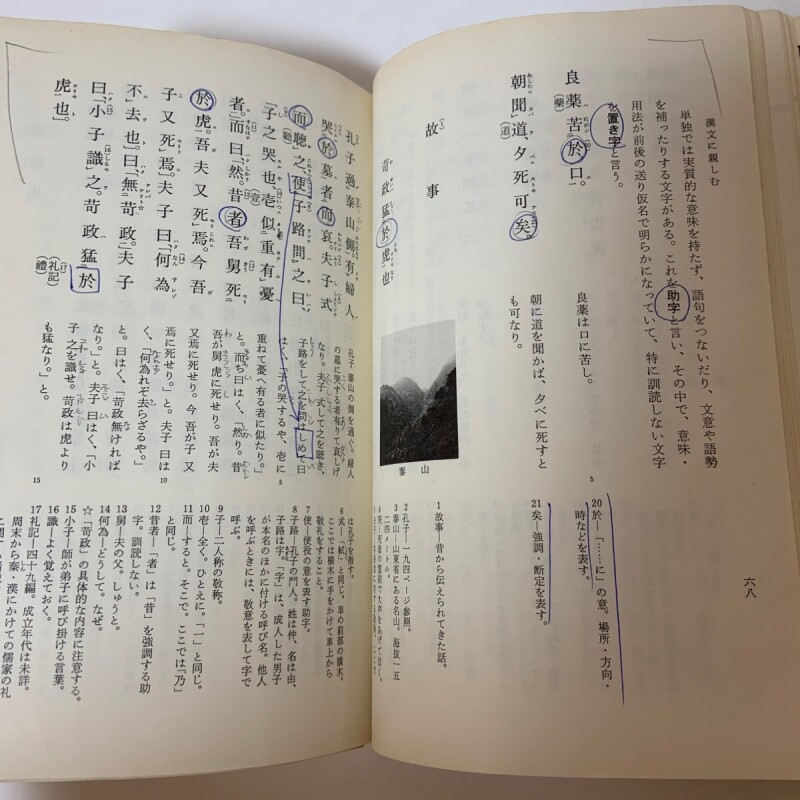 漢文に親しむ
単独では実質的な意味を持たず、語句をつないだり、文意や語勢
を補ったりする文字がある。これを助字と言い、その中で、意味・
用法が前後の送り仮名で明らかになっていて、特に訓読しない文字
を置き字と言う。
良薬苦於口。
(藥)
良薬は口に苦し。
朝聞道、夕死可矣。
朝に道を聞かば、夕べに死すと
も可なり。
20 於―「……に」の意。場所・方向・
時などを表す。
21 矣―強調・断定を表す。
六八
故事
苛政猛於虎也
泰山
1 故事―昔から伝えられてきた話。
2 孔子―一九四ページ参照。
3 泰山―山東省にある名山。海抜一五
二四メートル。
孔子過泰山側。有婦人
哭於墓者而哀。夫子式
而聴之、使子路問之曰、
(聽)
「子之哭也、壱似重有憂
(壹)
者。」而曰、「然。昔者吾舅死
於虎。吾夫又死焉。今吾
子又死焉。」夫子曰、「何為
不去也。」曰、「無苛政。」夫子
曰、「小子識之。苛政猛於
虎也。」
(礼記)
(禮)
孔子 泰山の側を過ぐ。婦人
の墓に哭する者有りて哀しげ
なり。夫子 式して之を聴き、
子路をして之を問はしめて曰
はく、「子の哭するや、壱に
重ねて憂へ有る者に似たり。」
と。而ち曰はく、「然り。昔
吾が舅 虎に死せり。吾が夫
又焉に死せり。今 吾が子 又
焉に死せり。」と。夫子曰は
く、「何為れぞ去らざるや。」
と。曰はく、「苛政無ければ
なり。」と。夫子曰はく、「小
子 之を識せ。苛政は虎より
も猛なり。」と。
5
10
15
は孔子を指す。
6 式―「軾」と同じ。車の前部の横木。
ここでは横木に手をかけて車上から
敬礼をすること。
7 使―使役の意を表す助字。
8 子路―孔子の門人。姓は仲、名は由、
子路は字。「字」は、成人した男子
が本名のほかに付ける呼び名。他人
を呼ぶときには、敬意を表して字で
呼ぶ。
9 子―二人称の敬称。
10 壱―全く。ひとえに。「一」と同じ。
11 而―すると。そこで。ここでは「乃」
と同じ。
12 昔者―「者」は「昔」を強調する助
字。訓読しない。
13 舅―夫の父。しゅうと。
14 何為―どうして。なぜ。
☆「苛政」の具体的な内容に注意する。
15 小子―師が弟子に呼び掛ける言葉。
16 識―よく覚えておく。
17 礼記―四十九編。成立年代は未詳。
周末から秦・漢にかけての儒家の礼